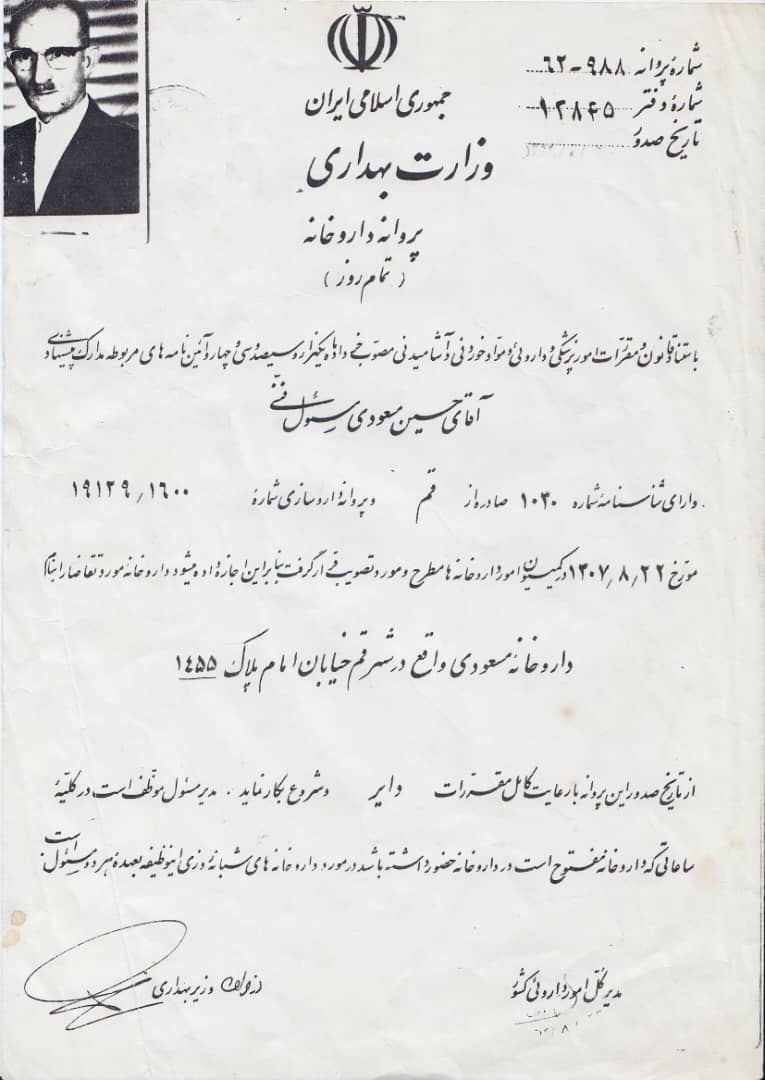 شمارهٔ پروانه ۹۸۸-۶۲
شمارهٔ دفتر ۱۲۸۴۵
تاریخ صدور
جمهوری اسلامی ایران
وزارت بهداری
پروانه داروخانه
( تمام روز )
باستناد قانون و مقررات امور پزشکی و داروئی و مواد خوردنی و آشامیدنی مصوب خرداد ماه یکهزار و سیصد و سی و چهار و آئین نامه های مربوطه مدارک پیشنهادی
آقای حسین مسعودی مسئول فنی
دارای شناسنامهٔ شماره ۱۰۳۰ صادره از قم و پروانهٔ داروسازی شمارهٔ ۱۹۱۲۹/۱۶۰۰
مورخ ۱۳۰۷/۸/۲۲ در کمیسیون امور داروخانه ها مطرح و مورد تصویب قرار گرفت بنابراین اجازه داده میشود داروخانه مورد تقاضا را بنام
داروخانهٔ مسعودی واقع در شهر قم خیابان امام پلاک ۱۴۵۵
از تاریخ صدور این پروانه با رعایت کامل مقررات دایر و شروع بکار نماید . مدیر مسئول موظف است در کلیهٔ
ساعاتی که داروخانه مفتوح است در داروخانه حضور داشته باشد در مورد داروخانه های شبانه روزی این وظیفه بعهده هر دو مسئول است
مدیر کل امور داروئی کشور
از طرف وزیر بهداری